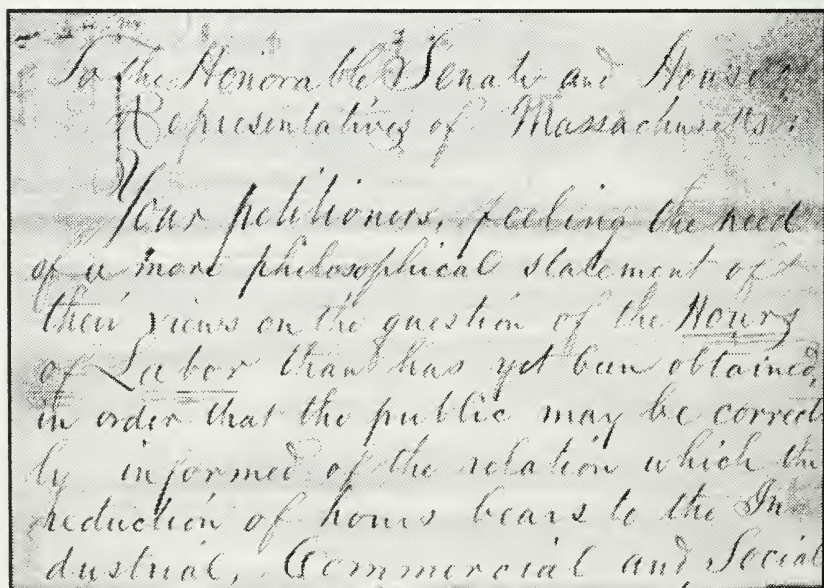 To the Honorable Senate and House of
Representatives of Massachusetts:
Your petitioners, feeling the need
of a more philosophical statement of
their views on the question of the Hours
of Labor than has yet been obtained,
in order that the public may be correct
ly informed of the relation which the
reduction of hours bears to the In
dustrial, Commercial and Social